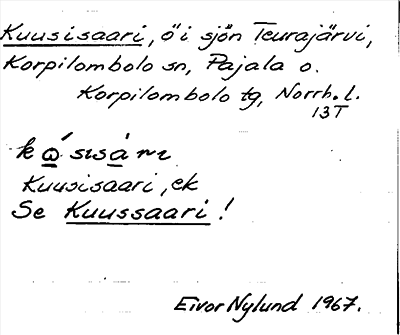 Kuusisaari, ö i sjön Teurajärvi,
Korpilombolo sn, Pajala o.
Korpilombolo tg, Norrb. l.
13T
Kuusisaari, ek
Se Kuussaari!
Eivor Nylund 1967.